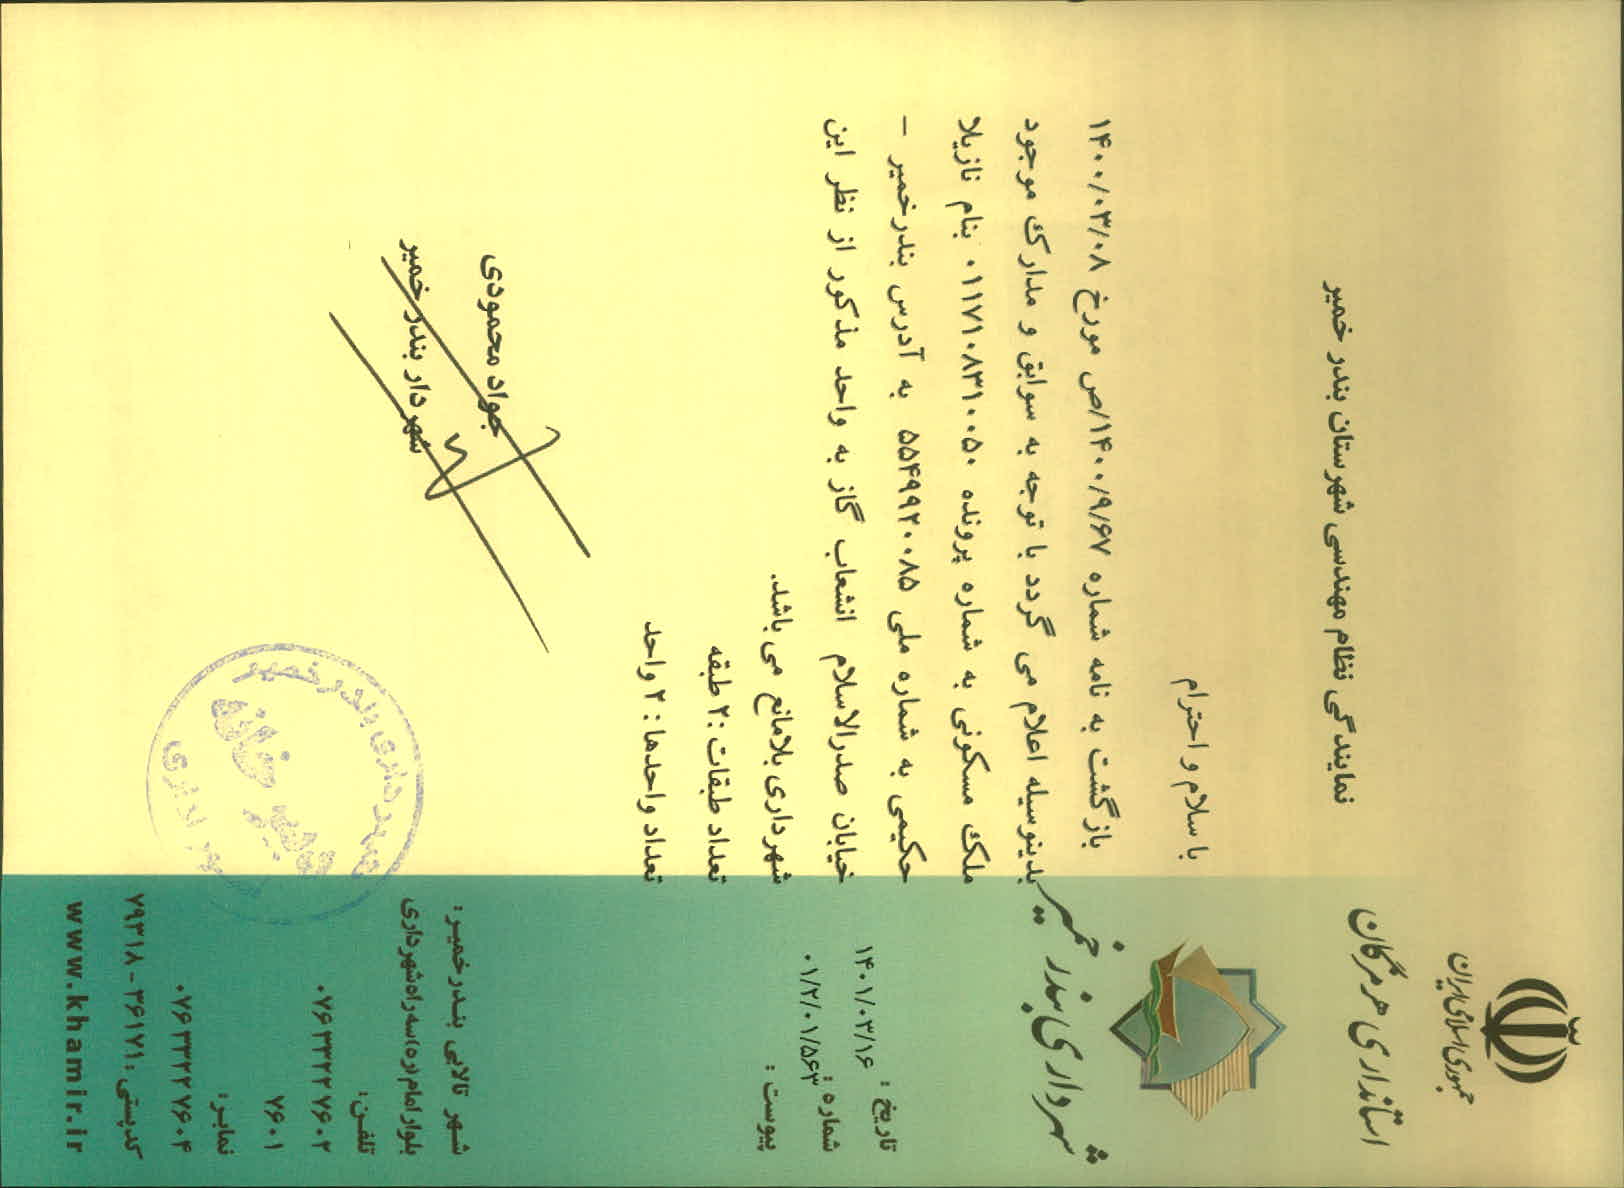 جمهوری اسلامی ایران
استانداری هرمزگان
شهرداری بندر خمیر
تاریخ : ۱۴۰۱/۰۳/۱۶
شماره : ۰۱/۲/۰۱/۵۶۳
پیوست :
نمایندگی نظام مهندسی شهرستان بندر خمیر
با سلام و احترام
بازگشت به نامه شماره ۱۴۰۰/۹/۶۷/ص مورخ ۱۴۰۰/۰۳/۰۸
بدینوسیله اعلام می گردد با توجه به سوابق و مدارک موجود
ملک مسکونی به شماره پرونده ۰۱۱۷۱۰۸۳۱۰۰۵۰ بنام نازیلا
حکیمی به شماره ملی ۵۵۴۹۹۲۰۰۸۵ به آدرس بندرخمیر –
خیابان صدرالاسلام انشعاب گاز به واحد مذکور از نظر این
شهرداری بلامانع می باشد.
تعداد طبقات :۲ طبقه
تعداد واحدها : ۲ واحد
جواد محمودی
شهردار بندرخمیر
شهرداری بندر خمیر
شهر تالابی بندرخمیر :
بلوار امام (ره) سه راه شهرداری
تلفن:
۰۷۶۳۳۲۲۷۶۰۲
۷۶۰۱
نمابر:
۰۷۶۳۳۲۲۷۶۰۴
کدپستی : ۳۶۱۷۱ - ۷۹۳۱۸
www.khamir.ir